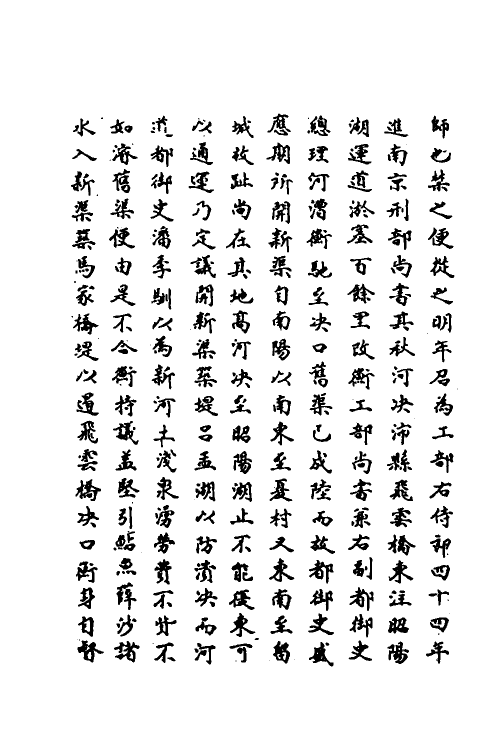 師也棻之便從之明年召為工部右侍郎四十四年
進南京刑部尚書其秋河决沛縣飛雲橋東注昭陽
湖運道淤塞百餘里改衡工部尚書兼右副都御史
總理河漕衡馳至决口舊渠已成陸而故都御史盛
應期所開新渠自南陽以南東至夏村又東南至留
城故趾尚在其地髙河决至昭陽湖止不能復東可
以通運乃定議開新渠築堤吕孟湖以防潰决而河
道都御史潘季馴以為新河土淺泉湧勞費不貲不
如濬舊渠便由是不合衡持議益堅引鮎魚薛沙諸
水入新渠築馬家橋堤以遏飛雲橋决口衡身自督